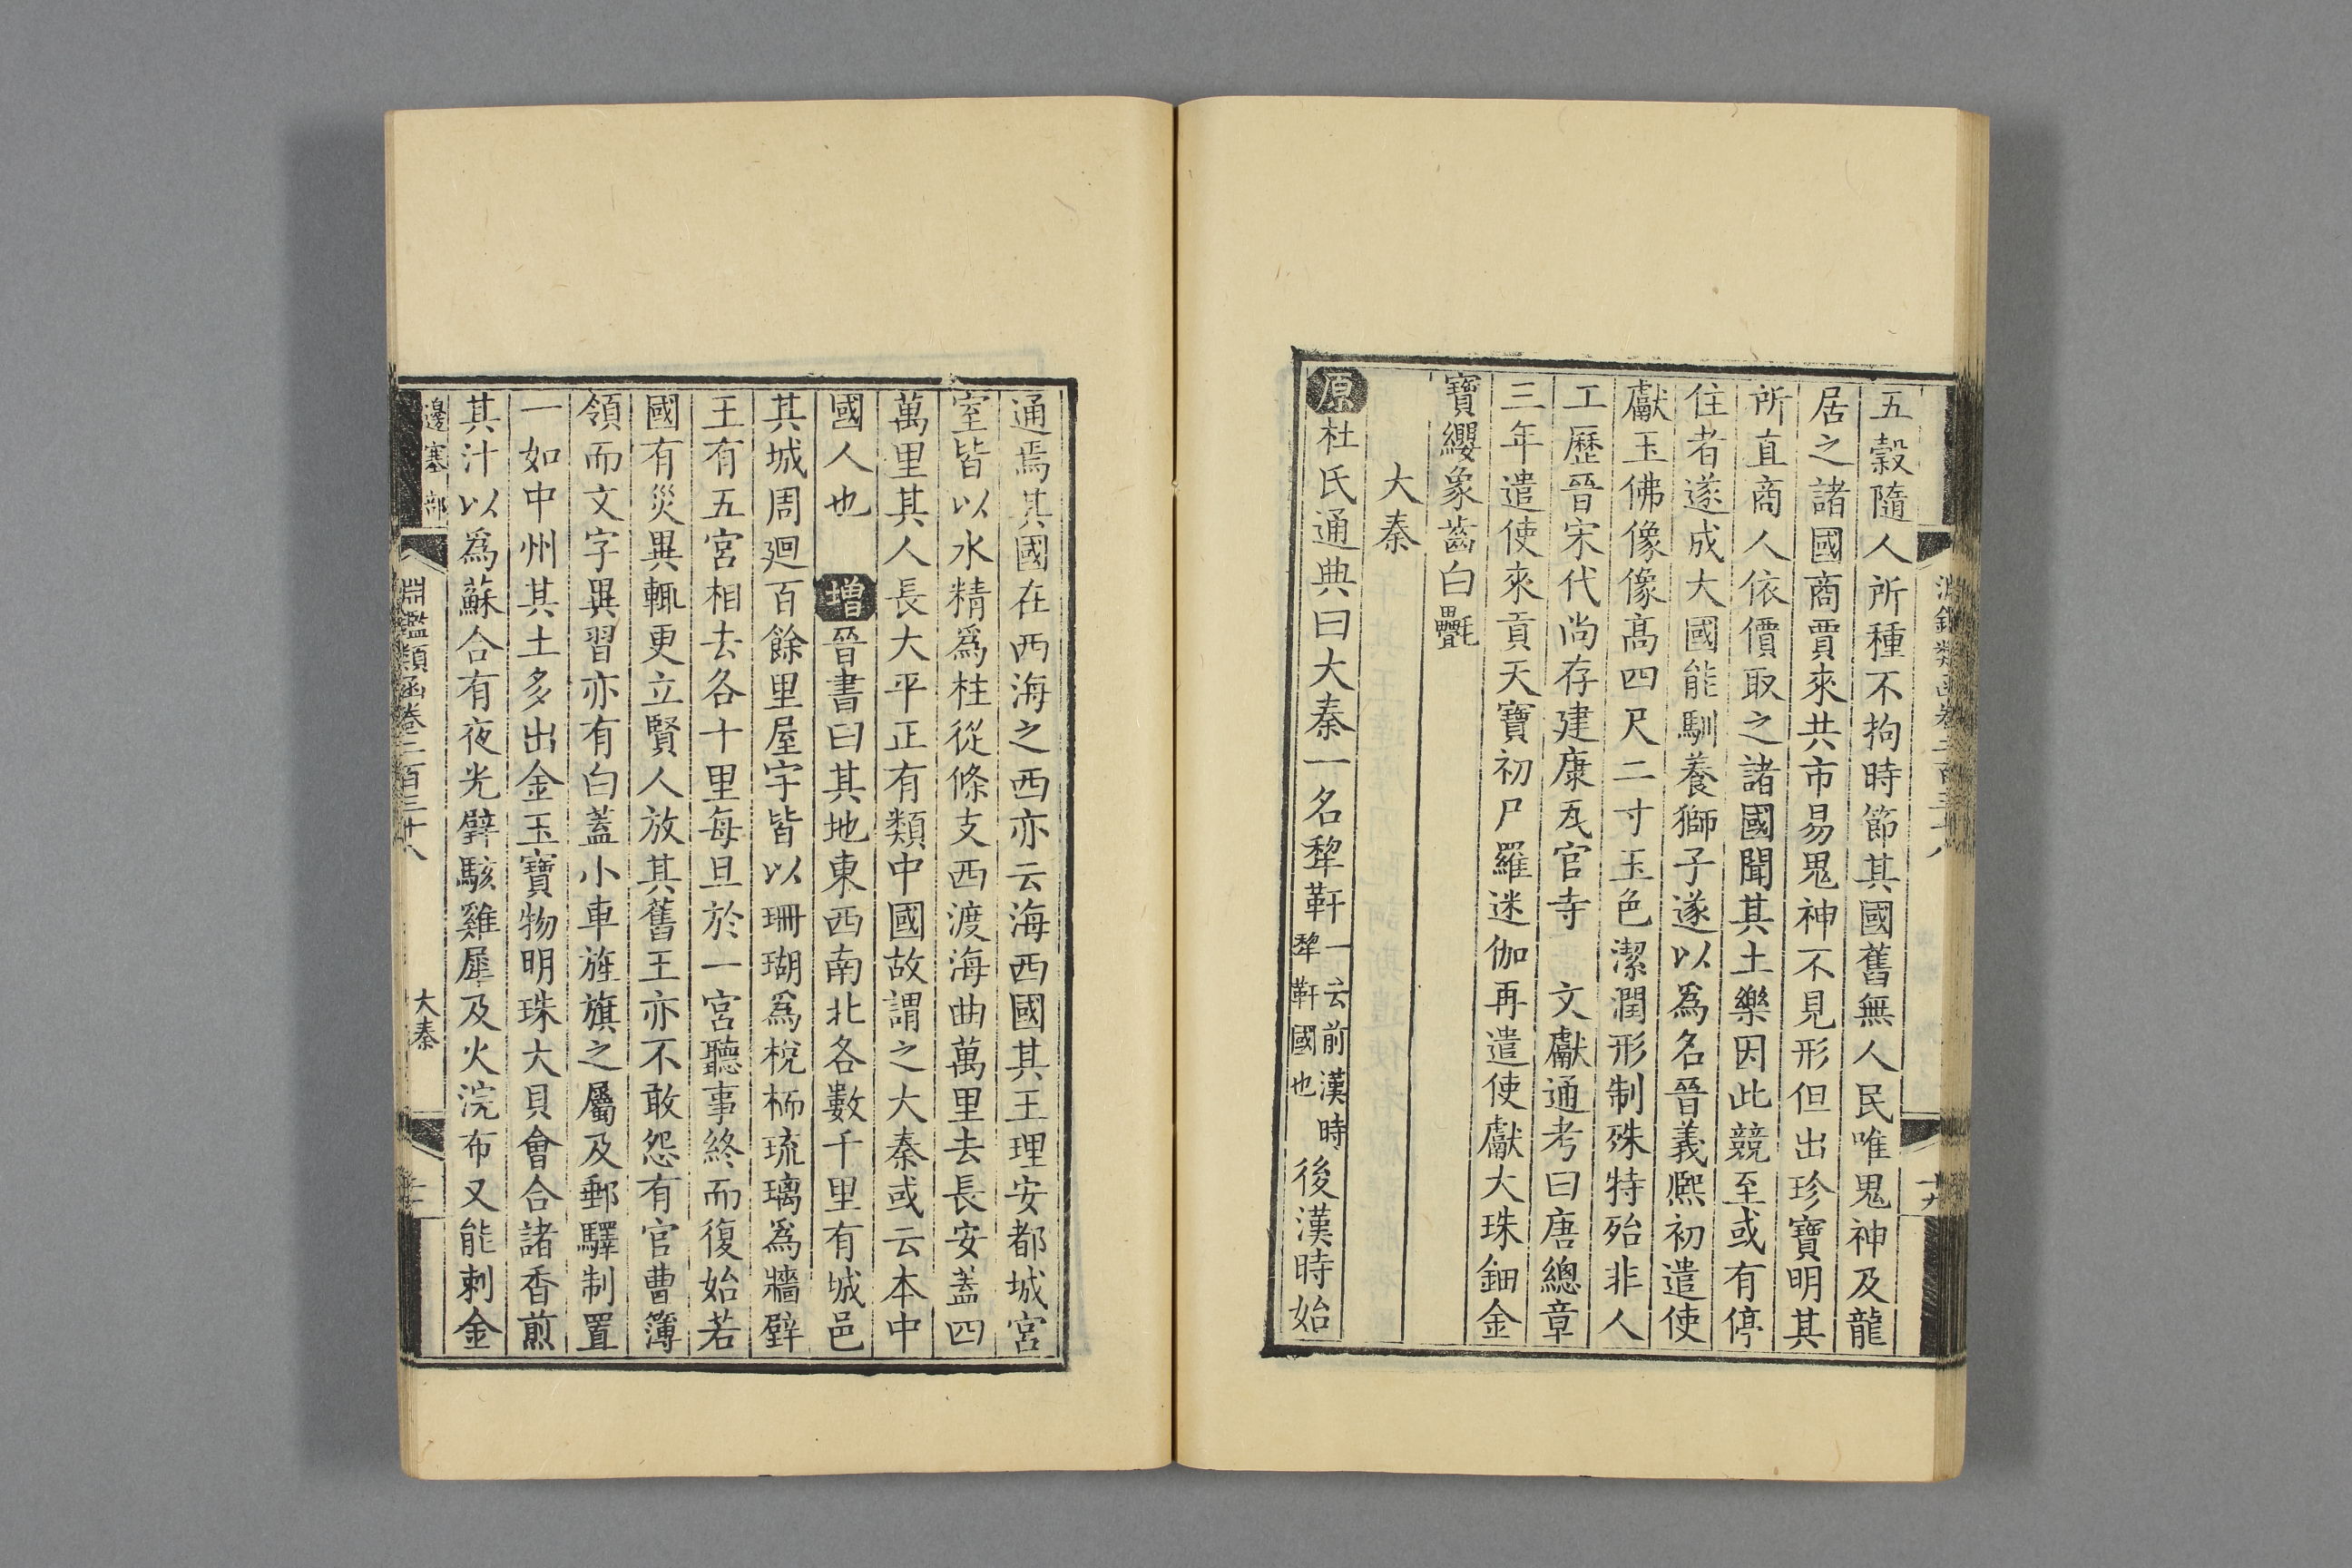 五穀隨人所種不拘時節其國舊無人民唯鬼神及龍
居之諸國商賈來共市易鬼神不見形但出珍寶明其
所直商人依價取之諸國聞其土樂因此競至或有停
住者遂成大國能馴養獅子遂以爲名晉義熙初遣使
獻玉佛像像高四尺二寸玉色潔潤形制殊特殆非人
工歷晉宋代尚存建康瓦官寺　文獻通考曰唐總章
三年遣使來貢天寶初尸羅迷伽再遣使獻大珠鈿金
寶纓象齒白氎
大秦
原杜氏通典曰大秦一名犂靬一云前漢時犂靬國也後漢時始
通焉其國在西海之西亦云海西國其王理安都城宮
室皆以水精爲柱從條支西渡海曲萬里去長安蓋四
萬里其人長大平正有類中國故謂之大秦或云本中
國人也　增晉書曰其地東西南北各數千里有城邑
其城周廻百餘里屋宇皆以珊瑚爲梲栭琉璃爲牆壁
王有五宮相去各十里每旦於一宮聽事終而復始若
國有災異輒更立賢人放其舊王亦不敢怨有官曹簿
領而文字異習亦有白蓋小車旌旗之屬及郵驛制置
一如中州其土多出金玉寶物明珠大貝會合諸香煎
其汁以爲蘇合有夜光璧駭雞犀及火浣布又能刺金
邊塞部
淵鑑類函卷二百三十八
大秦